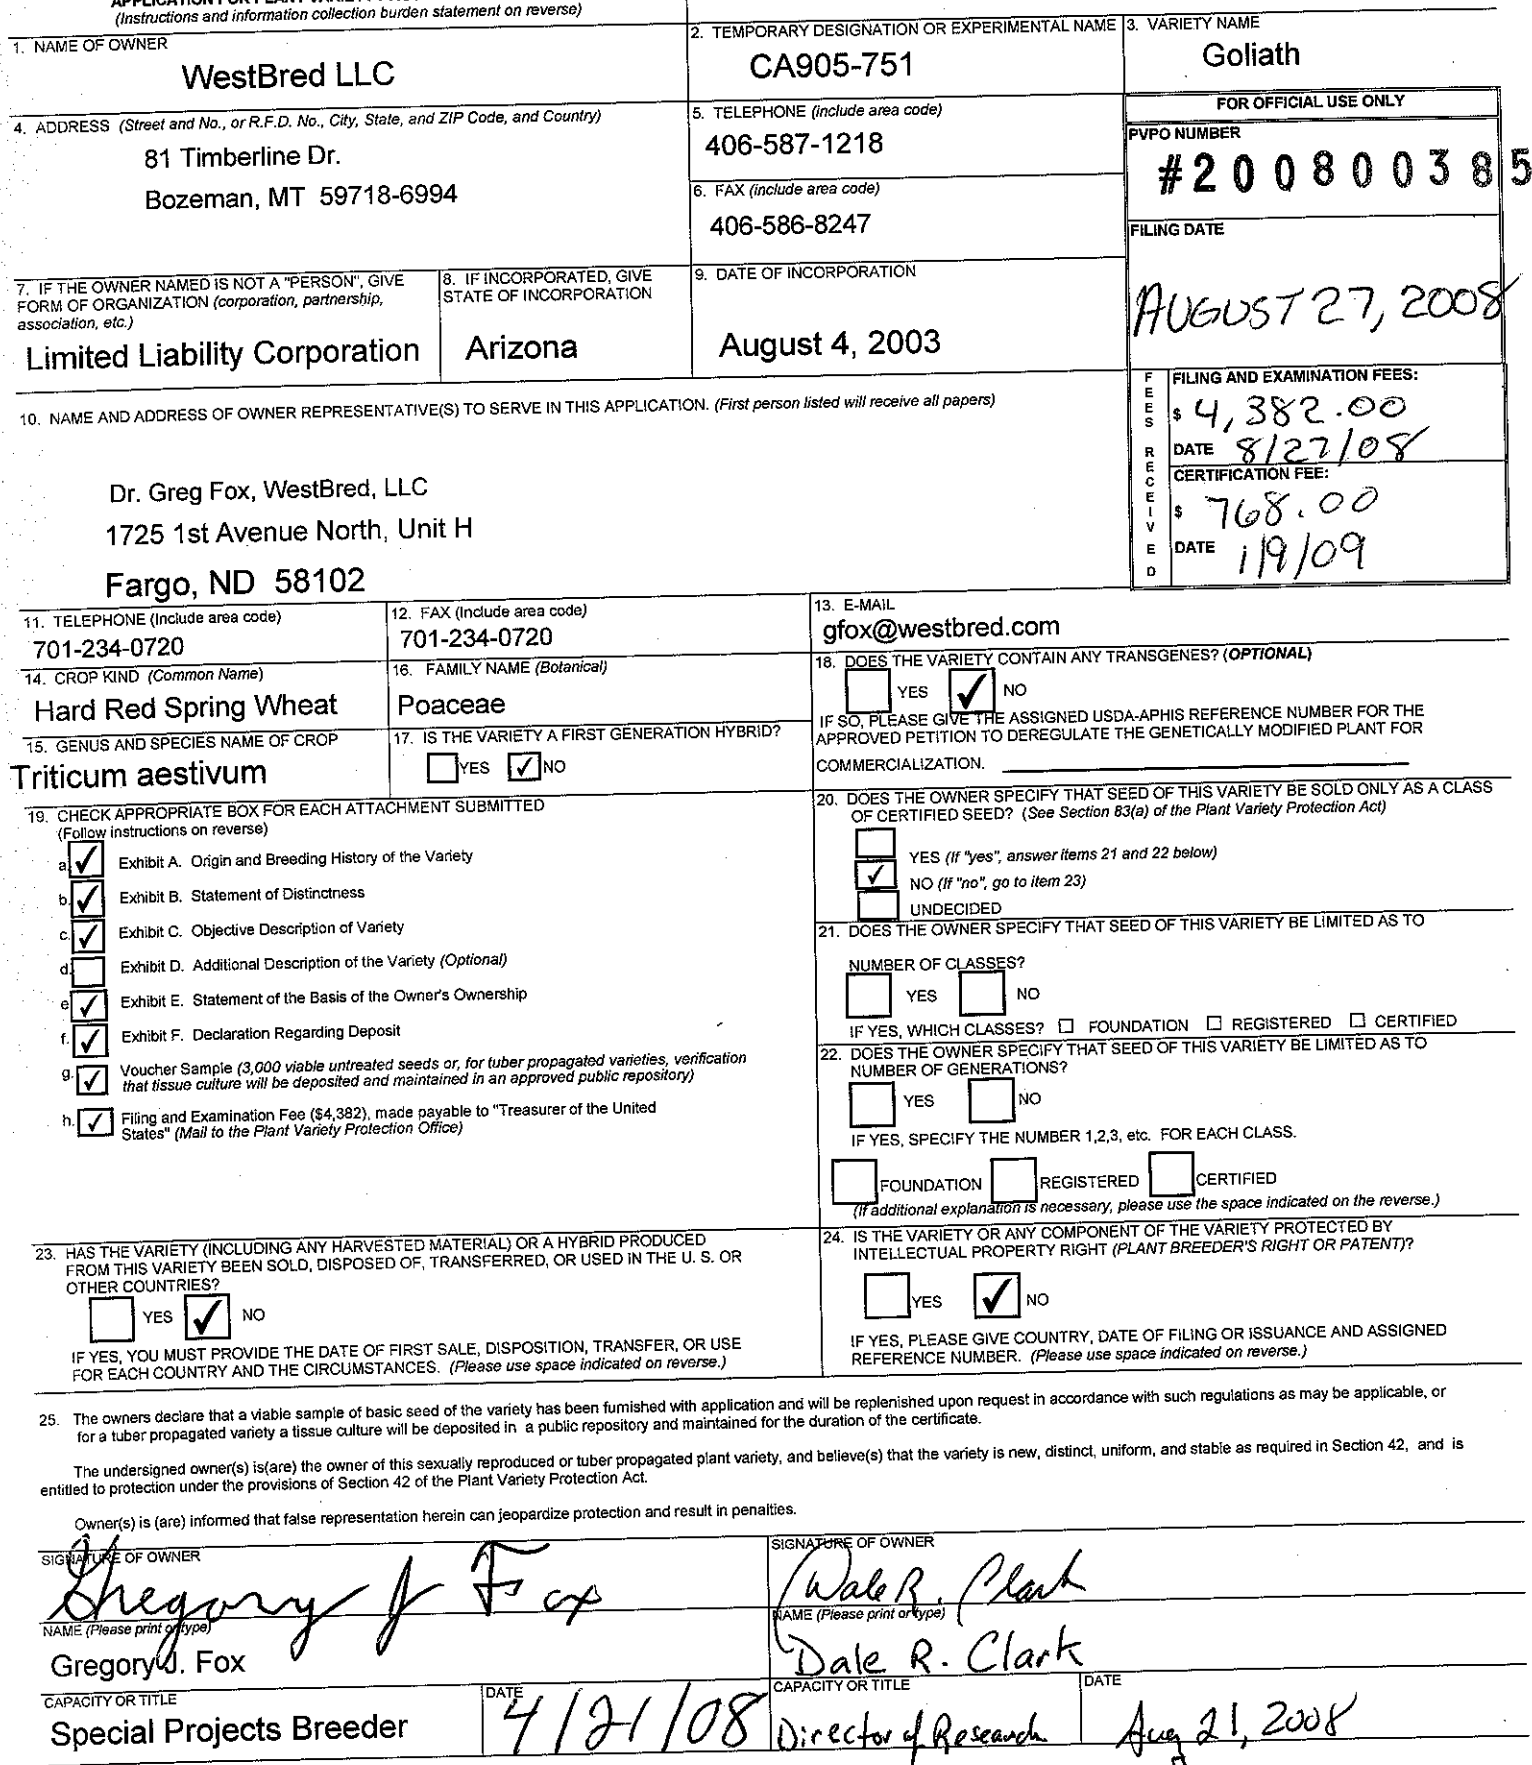 (Instructions and information collection burden statement on reverse)
1. NAME OF OWNER
WestBred LLC
2. TEMPORARY DESIGNATION OR EXPERIMENTAL NAME
CA905-751
3. VARIETY NAME
Goliath
4. ADDRESS (Street and No., or R.F.D. No., City, State, and ZIP Code, and Country)
81 Timberline Dr.
Bozeman, MT 59718-6994
5. TELEPHONE (include area code)
406-587-1218
6. FAX (include area code)
406-586-8247
FOR OFFICIAL USE ONLY
PVPO NUMBER
#200800385
FILING DATE
AUGUST 27, 2008
7. IF THE OWNER NAMED IS NOT A "PERSON", GIVE
FORM OF ORGANIZATION (corporation, partnership,
association, etc.)
Limited Liability Corporation
8. IF INCORPORATED, GIVE
STATE OF INCORPORATION
Arizona
9. DATE OF INCORPORATION
August 4, 2003
10. NAME AND ADDRESS OF OWNER REPRESENTATIVE(S) TO SERVE IN THIS APPLICATION. (First person listed will receive all papers)
Dr. Greg Fox, WestBred, LLC
1725 1st Avenue North, Unit H
Fargo, ND 58102
FEES RECEIVED
FILING AND EXAMINATION FEES:
$ 4,382.00
DATE 8/27/08
CERTIFICATION FEE:
$ 768.00
DATE 1/9/09
11. TELEPHONE (Include area code)
701-234-0720
12. FAX (Include area code)
701-234-0720
13. E-MAIL
gfox@westbred.com
14. CROP KIND (Common Name)
Hard Red Spring Wheat
16. FAMILY NAME (Botanical)
Poaceae
15. GENUS AND SPECIES NAME OF CROP
Triticum aestivum
17. IS THE VARIETY A FIRST GENERATION HYBRID?
YES ✓ NO
18. DOES THE VARIETY CONTAIN ANY TRANSGENES? (OPTIONAL)
YES ✓ NO
IF SO, PLEASE GIVE THE ASSIGNED USDA-APHIS REFERENCE NUMBER FOR THE
APPROVED PETITION TO DEREGULATE THE GENETICALLY MODIFIED PLANT FOR
COMMERCIALIZATION.
19. CHECK APPROPRIATE BOX FOR EACH ATTACHMENT SUBMITTED
(Follow instructions on reverse)
a. ✓ Exhibit A. Origin and Breeding History of the Variety
b. ✓ Exhibit B. Statement of Distinctness
c. ✓ Exhibit C. Objective Description of Variety
d. Exhibit D. Additional Description of the Variety (Optional)
e. ✓ Exhibit E. Statement of the Basis of the Owner's Ownership
f. ✓ Exhibit F. Declaration Regarding Deposit
g. ✓ Voucher Sample (3,000 viable untreated seeds or, for tuber propagated varieties, verification
that tissue culture will be deposited and maintained in an approved public repository)
h. ✓ Filing and Examination Fee ($4,382), made payable to "Treasurer of the United
States" (Mail to the Plant Variety Protection Office)
20. DOES THE OWNER SPECIFY THAT SEED OF THIS VARIETY BE SOLD ONLY AS A CLASS
OF CERTIFIED SEED? (See Section 83(a) of the Plant Variety Protection Act)
YES (If "yes", answer items 21 and 22 below)
✓ NO (If "no", go to item 23)
UNDECIDED
21. DOES THE OWNER SPECIFY THAT SEED OF THIS VARIETY BE LIMITED AS TO
NUMBER OF CLASSES?
YES NO
IF YES, WHICH CLASSES? ☐ FOUNDATION ☐ REGISTERED ☐ CERTIFIED
22. DOES THE OWNER SPECIFY THAT SEED OF THIS VARIETY BE LIMITED AS TO
NUMBER OF GENERATIONS?
YES NO
IF YES, SPECIFY THE NUMBER 1,2,3, etc. FOR EACH CLASS.
FOUNDATION REGISTERED CERTIFIED
(If additional explanation is necessary, please use the space indicated on the reverse.)
23. HAS THE VARIETY (INCLUDING ANY HARVESTED MATERIAL) OR A HYBRID PRODUCED
FROM THIS VARIETY BEEN SOLD, DISPOSED OF, TRANSFERRED, OR USED IN THE U. S. OR
OTHER COUNTRIES?
YES ✓ NO
IF YES, YOU MUST PROVIDE THE DATE OF FIRST SALE, DISPOSITION, TRANSFER, OR USE
FOR EACH COUNTRY AND THE CIRCUMSTANCES. (Please use space indicated on reverse.)
24. IS THE VARIETY OR ANY COMPONENT OF THE VARIETY PROTECTED BY
INTELLECTUAL PROPERTY RIGHT (PLANT BREEDER'S RIGHT OR PATENT)?
YES ✓ NO
IF YES, PLEASE GIVE COUNTRY, DATE OF FILING OR ISSUANCE AND ASSIGNED
REFERENCE NUMBER. (Please use space indicated on reverse.)
25. The owners declare that a viable sample of basic seed of the variety has been furnished with application and will be replenished upon request in accordance with such regulations as may be applicable, or
for a tuber propagated variety a tissue culture will be deposited in a public repository and maintained for the duration of the certificate.
The undersigned owner(s) is(are) the owner of this sexually reproduced or tuber propagated plant variety, and believe(s) that the variety is new, distinct, uniform, and stable as required in Section 42, and is
entitled to protection under the provisions of Section 42 of the Plant Variety Protection Act.
Owner(s) is (are) informed that false representation herein can jeopardize protection and result in penalties.
SIGNATURE OF OWNER
Gregory J Fox
SIGNATURE OF OWNER
Dale R. Clark
NAME (Please print or type)
Gregory J. Fox
NAME (Please print or type)
Dale R. Clark
CAPACITY OR TITLE
Special Projects Breeder
DATE
4/21/08
CAPACITY OR TITLE
Director of Research
DATE
Aug 21, 2008